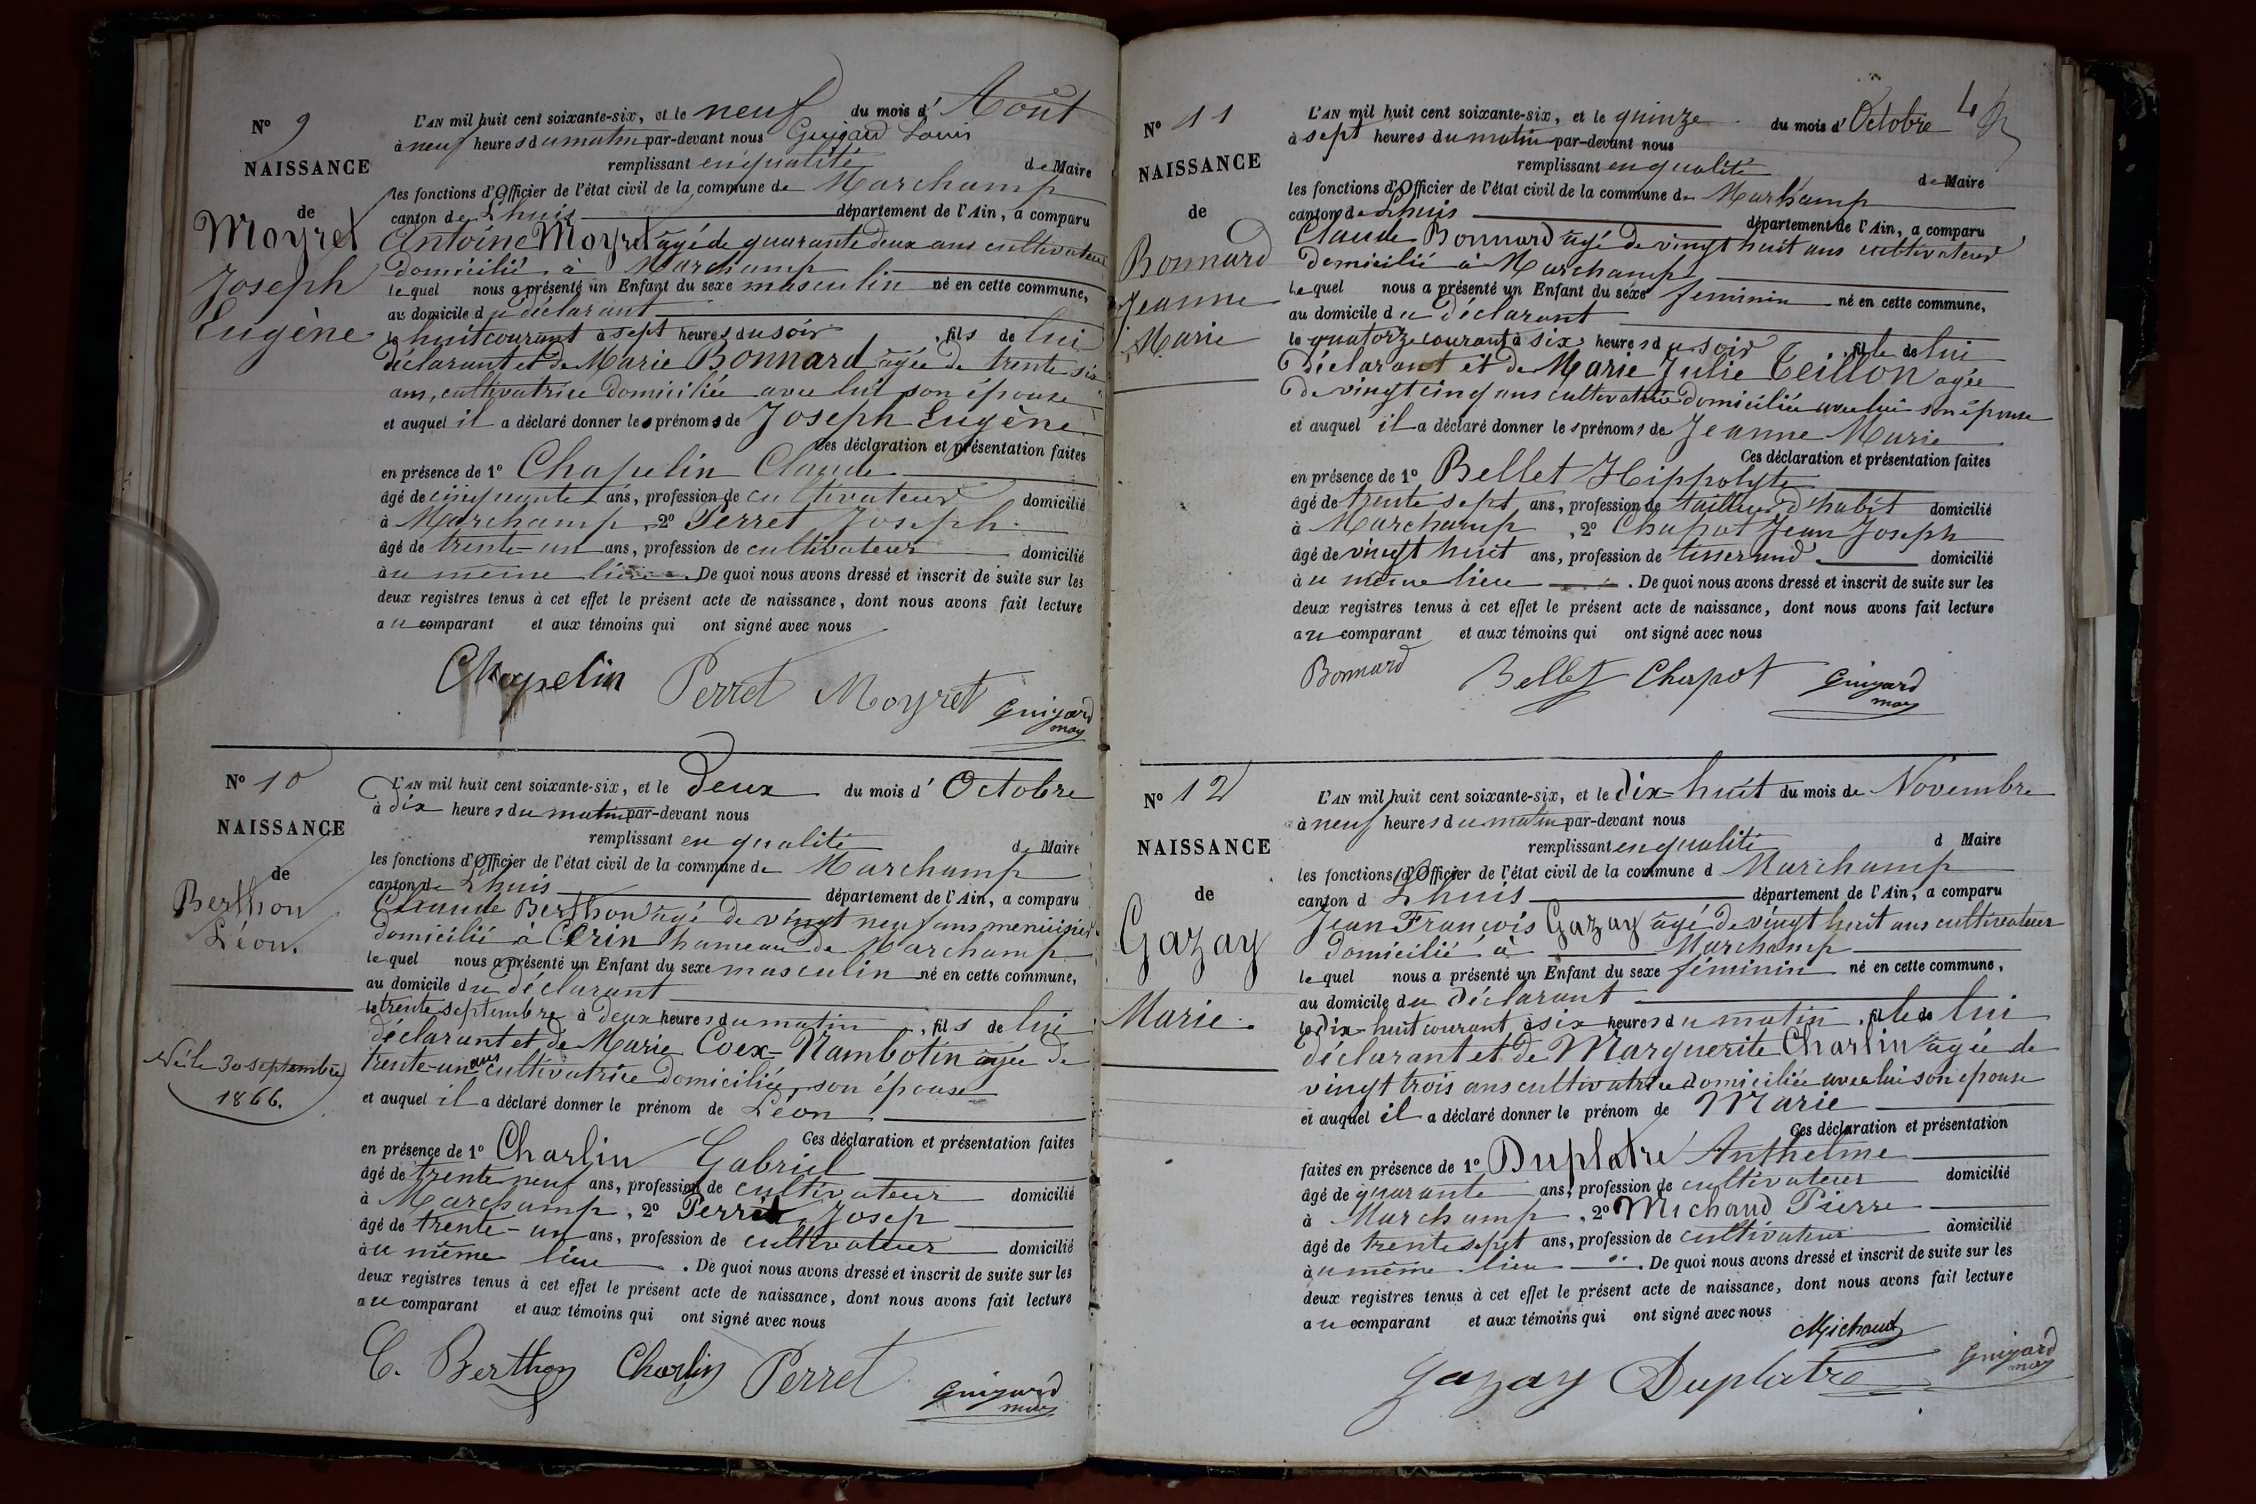 N° 9
NAISSANCE
de
Moyret
Joseph
Eugène
L'AN mil huit cent soixante-six, et le neuf du mois d'Août
à neuf heures du matin par-devant nous Guigard Louis
remplissant en qualité de Maire
les fonctions d'Officier de l'état civil de la commune de Marchamp
canton de Lhuis département de l'Ain, a comparu
Antoine Moyret agé de quarante deux ans cultivateur
domicilié à Marchamp
lequel nous a présenté un Enfant du sexe masculin né en cette commune,
au domicile du déclarant
le huit courant à sept heures du soir, fils de lui
déclarant et de Marie Bonnard agée de trente six
ans, cultivatrice domiciliée avec lui son épouse
et auquel il a déclaré donner les prénoms de Joseph Eugène
Ces déclaration et présentation faites
en présence de 1° Chapelin Claude
âgé de cinquante ans, profession de cultivateur domicilié
à Marchamp, 2° Perret Joseph
âgé de trente-un ans, profession de cultivateur domicilié
au même lieu. De quoi nous avons dressé et inscrit de suite sur les
deux registres tenus à cet effet le présent acte de naissance, dont nous avons fait lecture
au comparant et aux témoins qui ont signé avec nous
Chapelin Perret Moyret Guigard
N° 10
NAISSANCE
de
Berthon
Léon.
Né le 30 septembre
1866.
L'AN mil huit cent soixante-six, et le deux du mois d'Octobre
à dix heures du matin par-devant nous
remplissant en qualité de Maire
les fonctions d'Officier de l'état civil de la commune de Marchamp
canton de Lhuis département de l'Ain, a comparu
Claude Berthon agé de vingt neuf ans menuisier
domicilié à Cerin hameau de Marchamp
lequel nous a présenté un Enfant du sexe masculin né en cette commune,
au domicile du déclarant
le trente septembre à deux heures du matin, fils de lui
déclarant et de Marie Coex-Nambotin agée de
trente-un ans cultivatrice domiciliée, son épouse
et auquel il a déclaré donner le prénom de Léon
Ces déclaration et présentation faites
en présence de 1° Charlin Gabriel
âgé de trente neuf ans, profession de cultivateur domicilié
à Marchamp, 2° Perret Josep
âgé de trente-un ans, profession de cultivateur domicilié
au même lieu. De quoi nous avons dressé et inscrit de suite sur les
deux registres tenus à cet effet le présent acte de naissance, dont nous avons fait lecture
au comparant et aux témoins qui ont signé avec nous
C. Berthon Charlin Perret Guigard
4
N° 11
NAISSANCE
de
Bonnard
Jeanne
Marie
L'AN mil huit cent soixante-six, et le quinze du mois d'Octobre
à sept heures du matin par-devant nous
remplissant en qualité de Maire
les fonctions d'Officier de l'état civil de la commune de Marchamp
canton de Lhuis département de l'Ain, a comparu
Claude Bonnard agé de vingt huit ans cultivateur
domicilié à Marchamp
lequel nous a présenté un Enfant du sexe feminin né en cette commune,
au domicile du déclarant
le quatorze courant à six heures du soir, fille de lui
Déclarant et de Marie Julie Teillon agée
de vingt cinq ans cultivatrice domiciliée avec lui son épouse
et auquel il a déclaré donner les prénoms de Jeanne Marie
Ces déclaration et présentation faites
en présence de 1° Bellet Hippolyte
âgé de trente sept ans, profession de tailleur d'habit domicilié
à Marchamp, 2° Chapot Jean Joseph
âgé de vingt huit ans, profession de tisserand domicilié
au même lieu. De quoi nous avons dressé et inscrit de suite sur les
deux registres tenus à cet effet le présent acte de naissance, dont nous avons fait lecture
au comparant et aux témoins qui ont signé avec nous
Bonnard Bellet Chapot Guigard
N° 12
NAISSANCE
de
Gazay
Marie.
L'AN mil huit cent soixante-six, et le dix-huit du mois de Novembre
à neuf heures du matin par-devant nous
remplissant en qualité d Maire
les fonctions d'Officier de l'état civil de la commune d Marchamp
canton d Lhuis département de l'Ain, a comparu
Jean François Gazay agé de vingt huit ans cultivateur
domicilié à Marchamp
lequel nous a présenté un Enfant du sexe féminin né en cette commune,
au domicile du déclarant
le dix-huit courant à six heures du matin, fille de lui
déclarant et de Marguerite Charlin agée de
vingt trois ans cultivatrice domiciliée avec lui son épouse
et auquel il a déclaré donner le prénom de Marie
Ces déclaration et présentation
faites en présence de 1° Duplatre Anthelme
âgé de quarante ans, profession de cultivateur domicilié
à Marchamp, 2° Michaud Pierre
âgé de trente sept ans, profession de cultivateur domicilié
au même lieu. De quoi nous avons dressé et inscrit de suite sur les
deux registres tenus à cet effet le présent acte de naissance, dont nous avons fait lecture
au comparant et aux témoins qui ont signé avec nous
Michaud
Gazay Duplatre Guigard